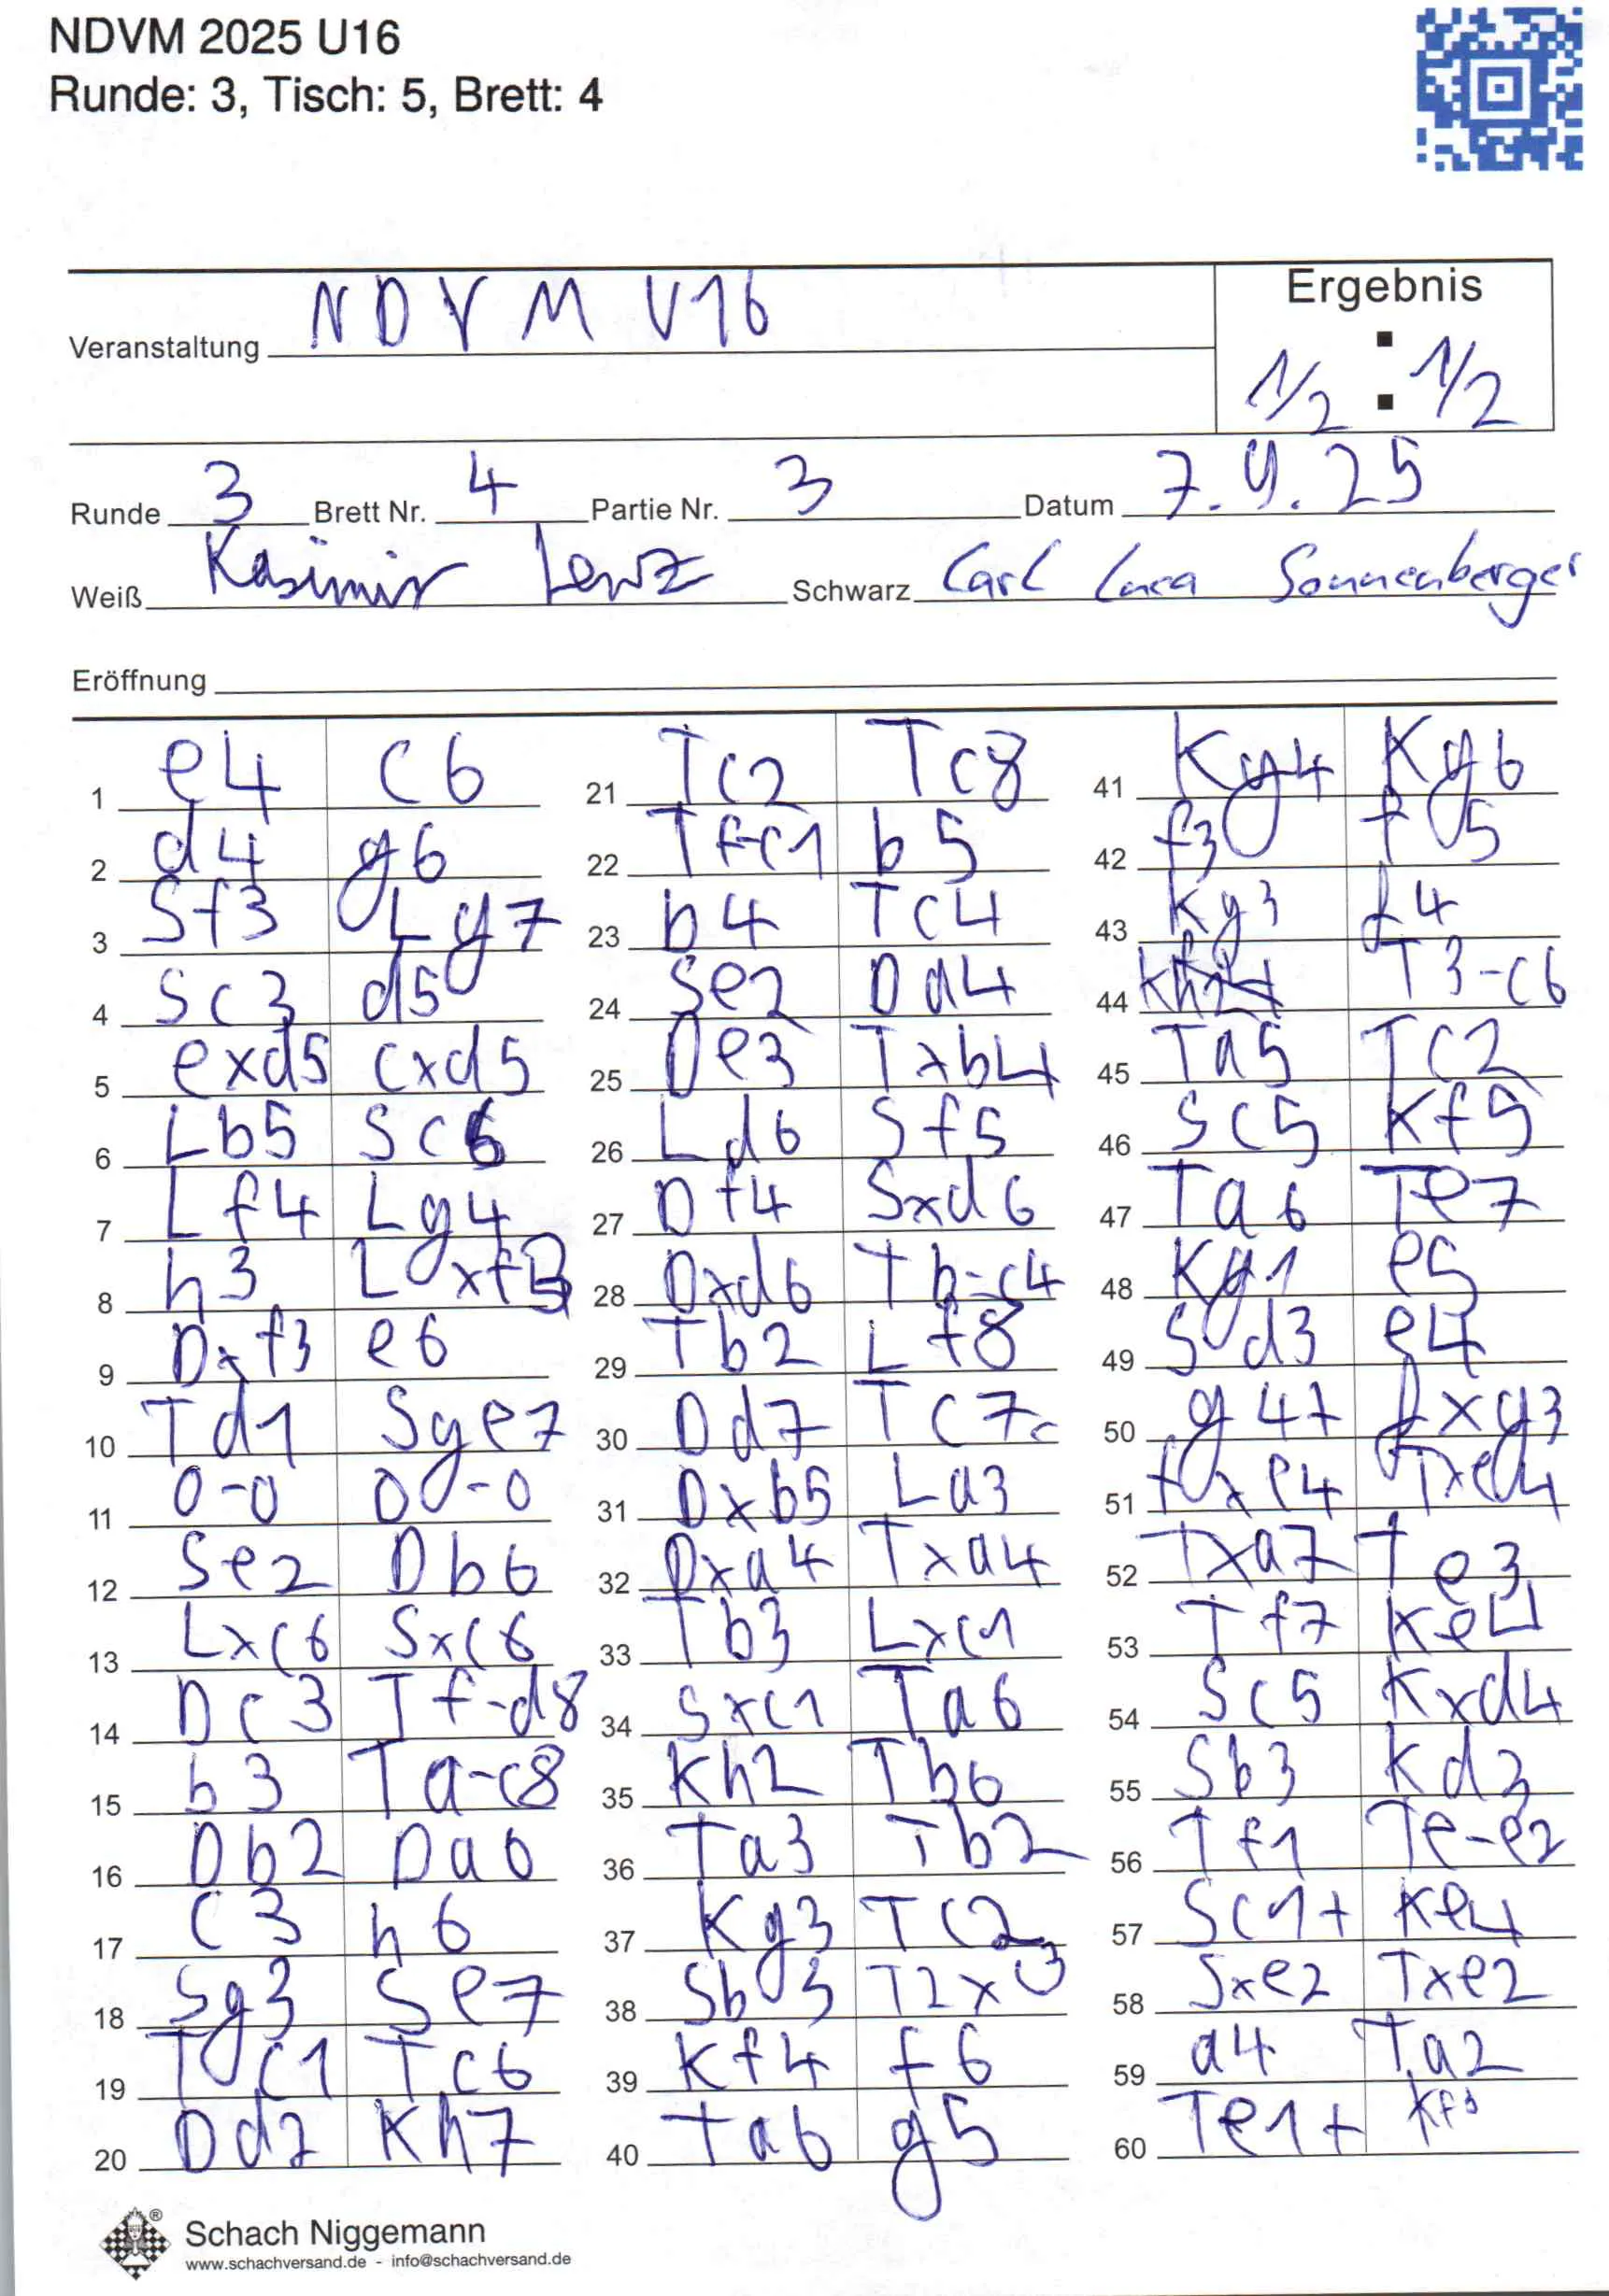 NDVM 2025 U16
Runde: 3, Tisch: 5, Brett: 4
Ergebnis
Veranstaltung NDVM U16
1/2 : 1/2
Runde 3 Brett Nr. 4 Partie Nr. 3 Datum 7.9.25
Weiß Kasimir Lenz Schwarz Carl Luca Sonnenberger
Eröffnung
1 e4 c6
2 d4 g6
3 Sf3 Lg7
4 Sc3 d5
5 exd5 cxd5
6 Lb5 Sc6
7 Lf4 Lg4
8 h3 Lxf3
9 Dxf3 e6
10 Td1 Sge7
11 0-0 0-0
12 Se2 Db6
13 Lxc6 Sxc6
14 Dc3 Tf-d8
15 b3 Ta-c8
16 Db2 Da6
17 c3 h6
18 Sg3 Se7
19 Tc1 Tc6
20 Dd2 Kh7
21 Tc2 Tc8
22 Tf-c1 b5
23 b4 Tc4
24 Se2 Da4
25 De3 Txb4
26 Ld6 Sf5
27 Df4 Sxd6
28 Dxd6 Tb-c4
29 Tb2 Lf8
30 Dd7 Tc7
31 Dxb5 La3
32 Dxa4 Txa4
33 Tb3 Lxc1
34 Sxc1 Ta6
35 Kh2 Tb6
36 Ta3 Tb2
37 Kg3 Tc2
38 Sb3 T2x3
39 Kf4 f6
40 Ta6 g5
41 Kg4 Kg6
42 f3 f5
43 Kg3 f4
44 Kh2 T3-c6
45 Ta5 Tc2
46 Sc5 Kf5
47 Ta6 Te7
48 Kg1 e5
49 Sd3 e4
50 g4+ fxg3
51 fxe4 Txe4
52 Txa7 Te3
53 Tf7 Ke4
54 Sc5 Kxd4
55 Sb3 Kd3
56 Tf1 Te-e2
57 Sc1+ Ke4
58 Sxe2 Txe2
59 a4 Ta2
60 Te1+ Kf3
Schach Niggemann
www.schachversand.de - info@schachversand.de